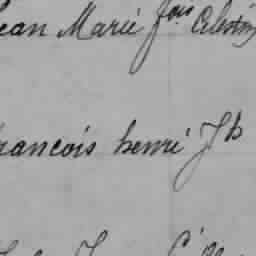 Jean Marie fois Célestin
francois henri Jh